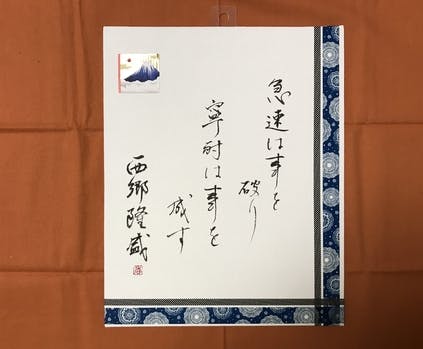 急速は事を
破り
寧耐は事を
成す
西郷隆盛